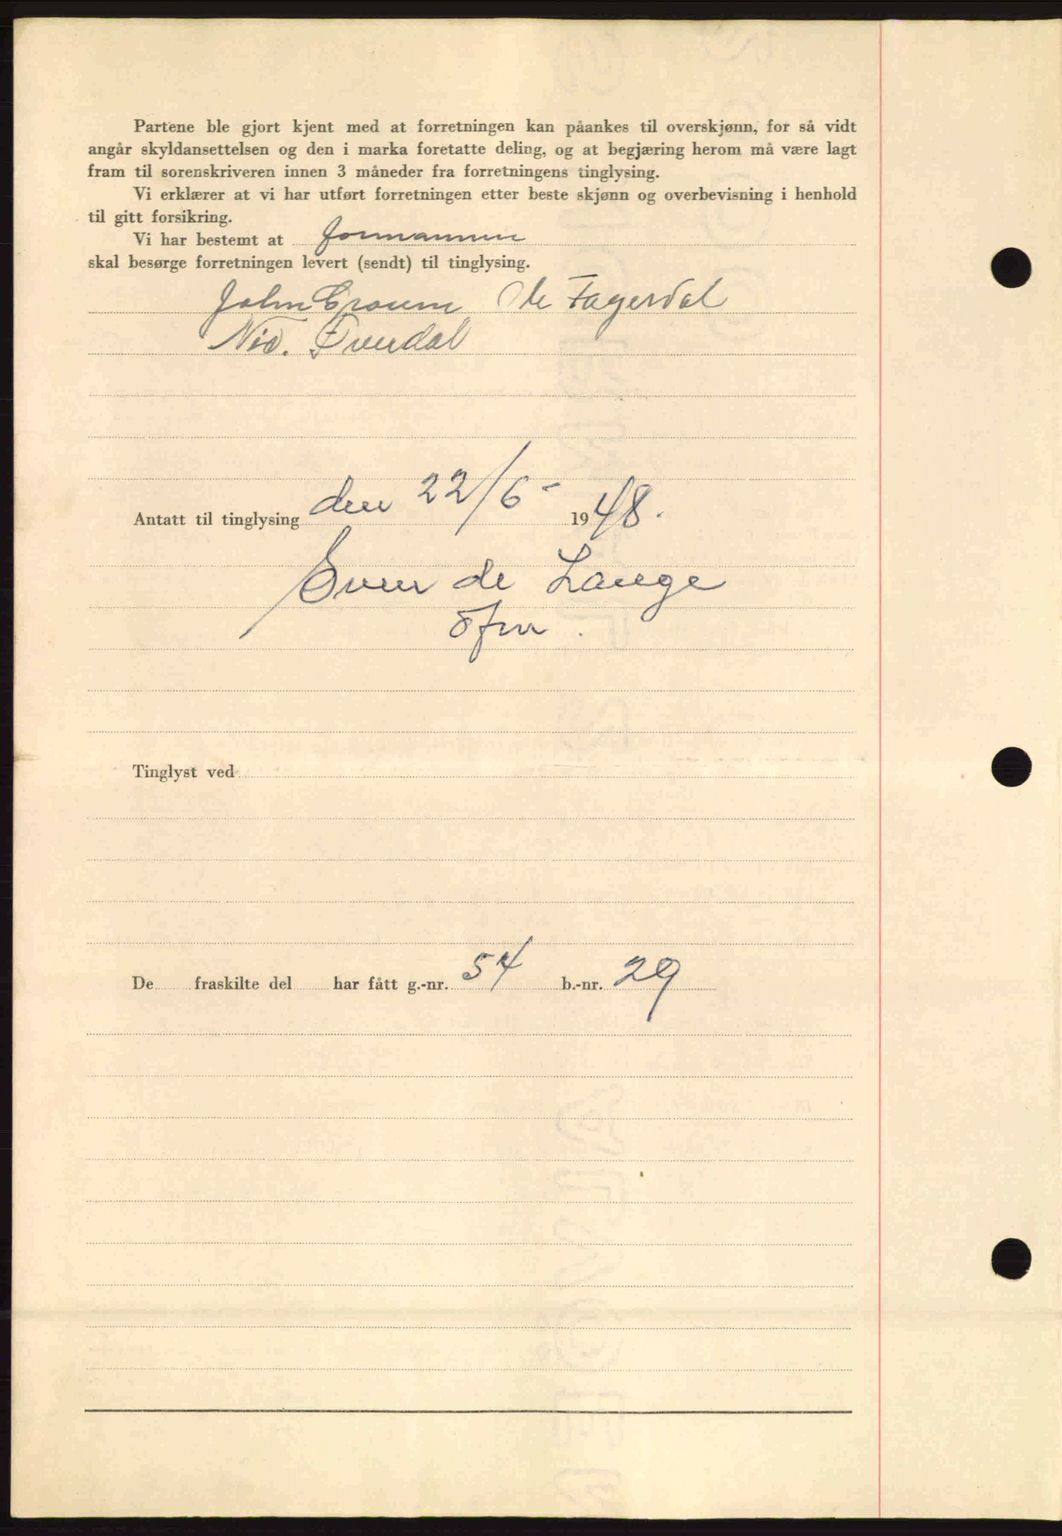 Partene ble gjort kjent med at forretningen kan påankes til overskjønn, for så vidt
angår skyldansettelsen og den i marka foretatte deling, og at begjæring herom må være lagt
fram til sorenskriveren innen 3 måneder fra forretningens tinglysing.
Vi erklærer at vi har utført forretningen etter beste skjønn og overbevisning i henhold
til gitt forsikring.
Vi har bestemt at formannen
skal besørge forretningen levert (sendt) til tinglysing.
John Ole Fagerdal
Nic.
Antatt til tinglysing den 22/6- 1948.
Sven de Lange
Tinglyst ved
De fraskilte del har fått g.-nr. 54 b.-nr. 29